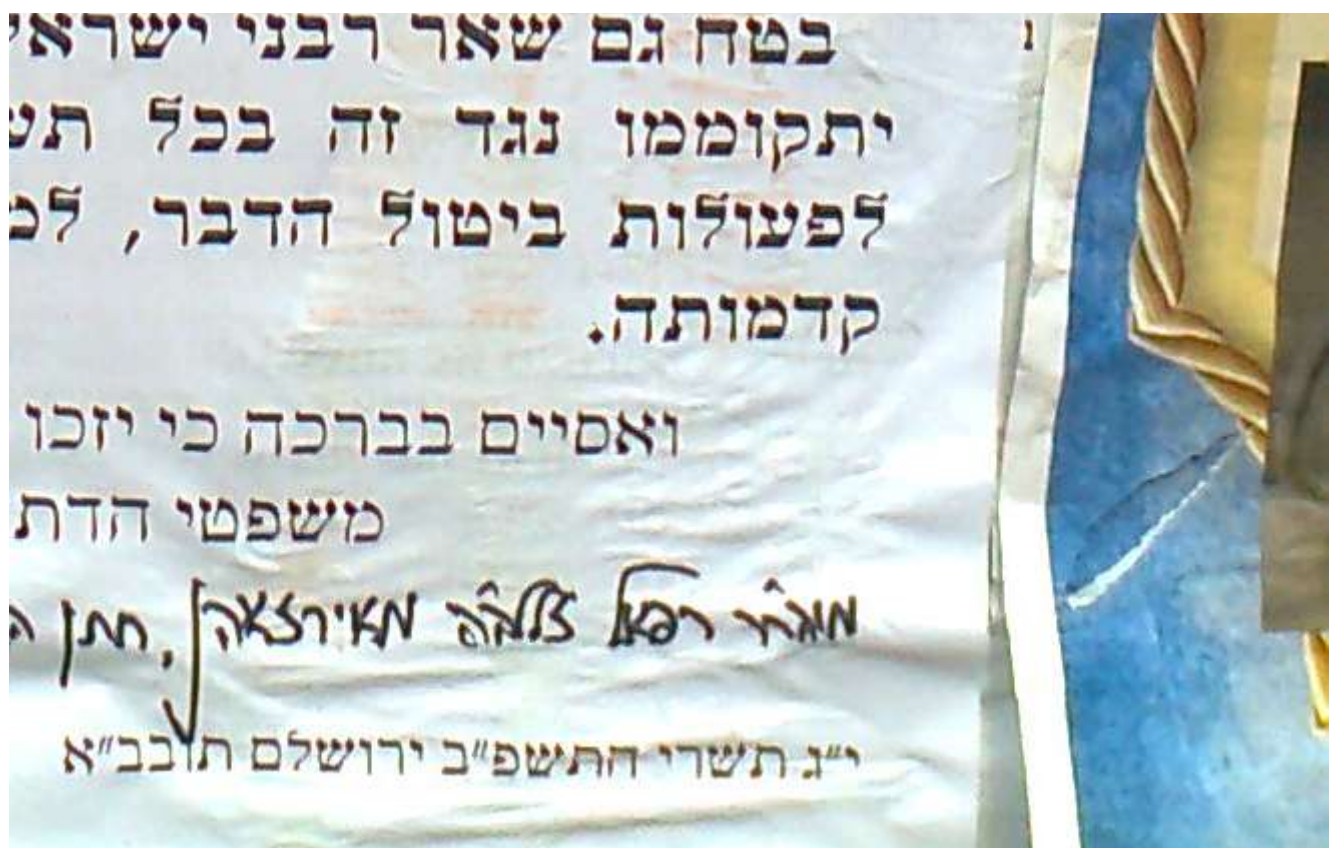 בטח גם שאר רבני ישראל
יתקוממו נגד זה בכל
לפעולות ביטול הדבר,
קדמותה.
ואסיים בברכה כי יזכו
משפטי הדת
רפאל מאירזאהן, חתן
י"ג תשרי התשפ"ב ירושלם תובב"א